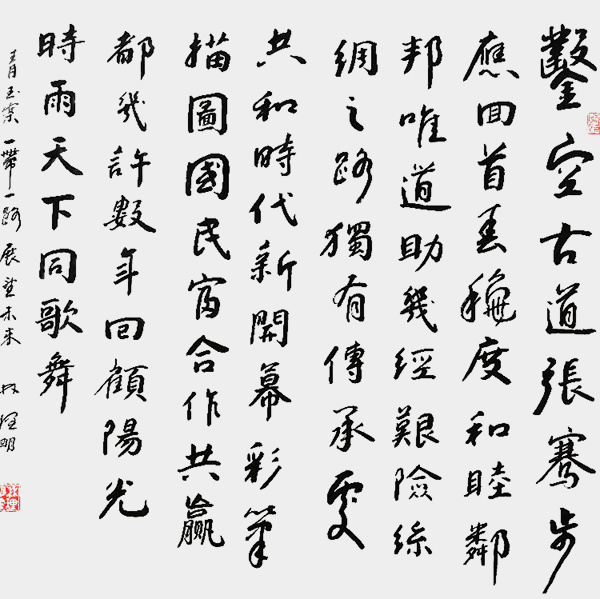 鑿空古道張騫步
應回首穐度和睦鄰
邦唯道助幾經艱險絲
綢之路獨有傳承處
共和時代新開幕彩筆
描圖國民富合作共贏
都幾許數年回顧陽光
時雨天下同歌舞
青玉案一帶一路展望未來 理明